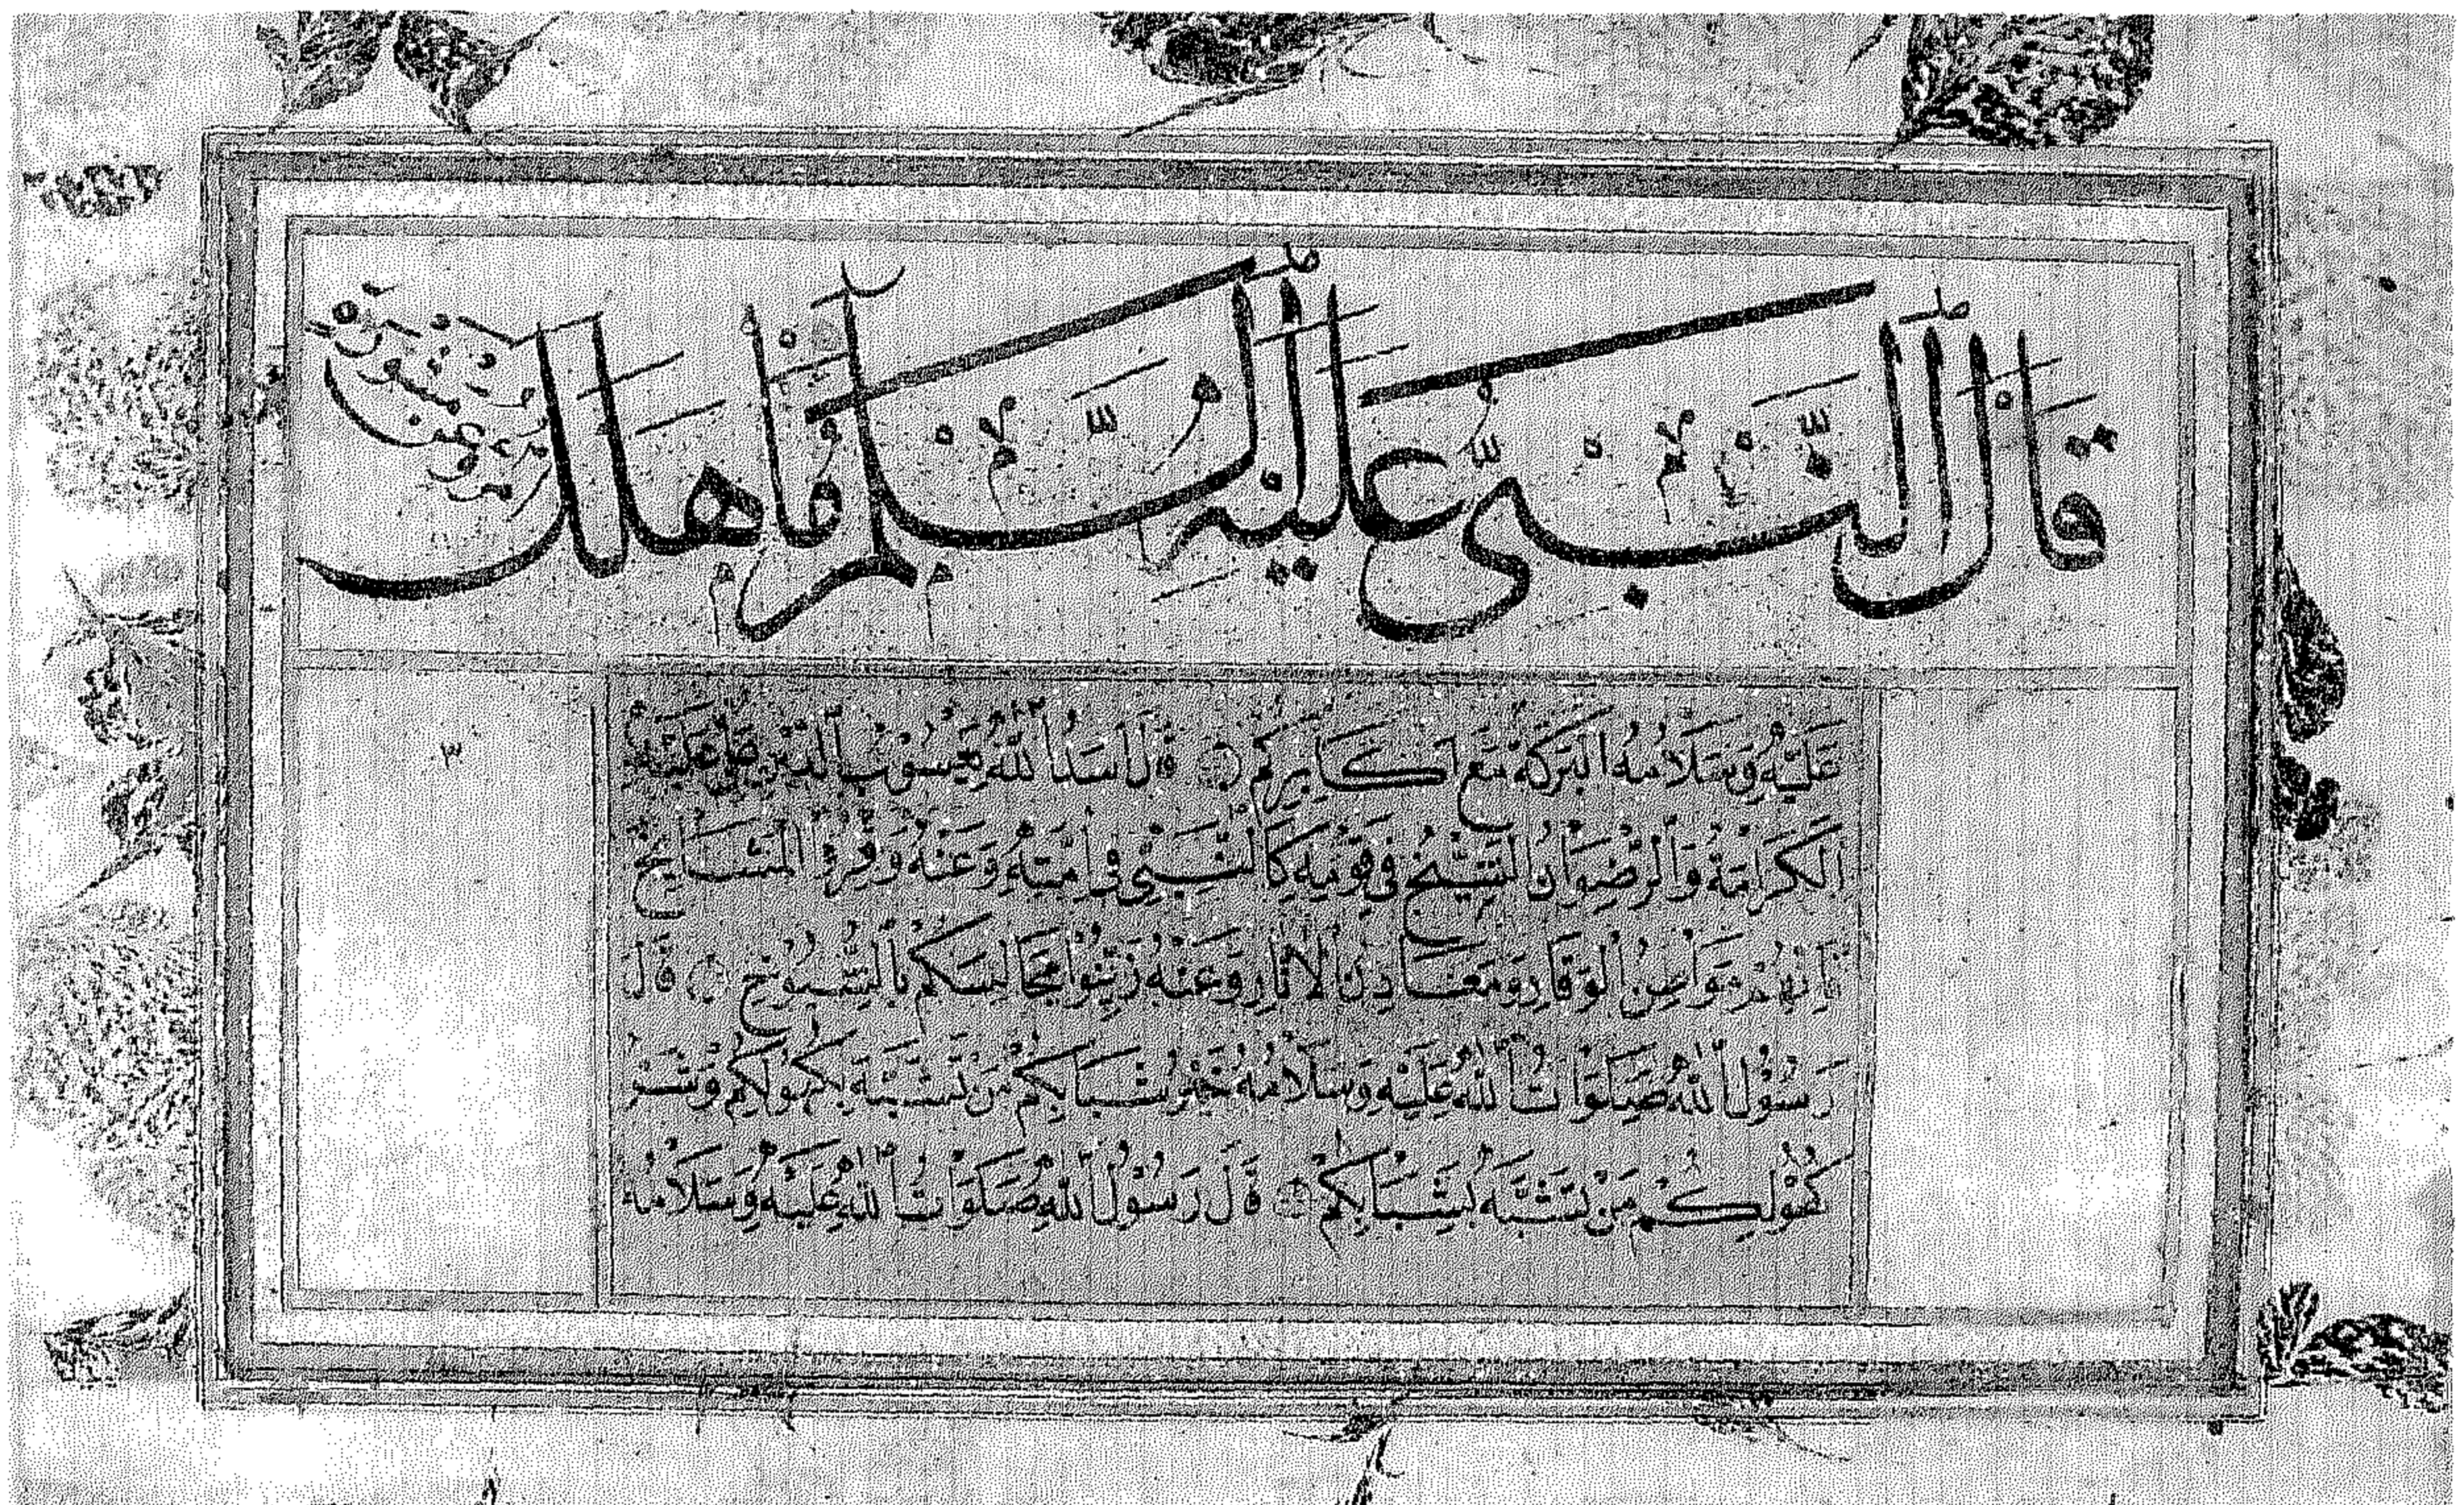 قال النبي عليه السلام ما هلك
عليه وسلامه البركة مع اكابركم قال اسد الله يعسوب الدين علي عليه
الكرامة والرضوان الشيخ في قومه كالنبي في امته وعنه وقروا المشايخ
الوقار ومعادن الاثار وعنه زينوا مجالسكم بالشيوخ قال
رسول الله صلوات الله عليه وسلامه خير شبابكم من تشبه بكهولكم وشر
كهولكم من تشبه بشبابكم قال رسول الله صلوات الله عليه وسلامه